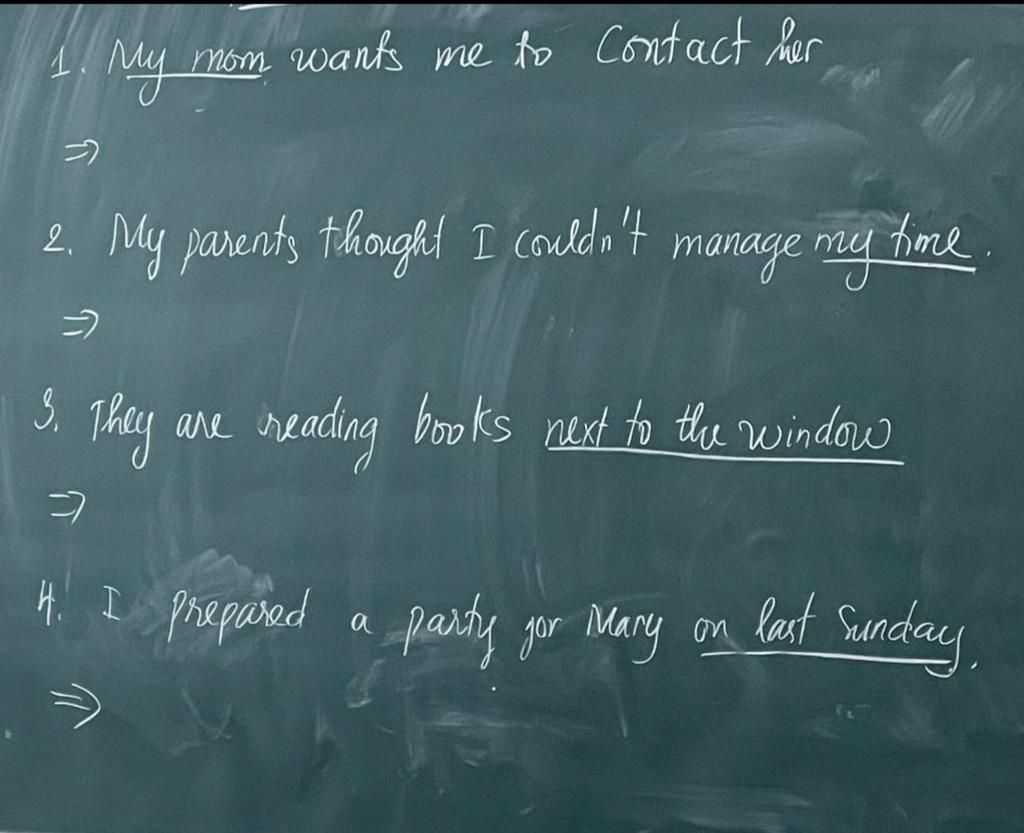 1. My mom wants me to Contact her
⇒
2. My parents thought I couldn't manage my time.
⇒
3. They are reading books next to the window
⇒
4. I prepared a party for Mary on last Sunday.
⇒